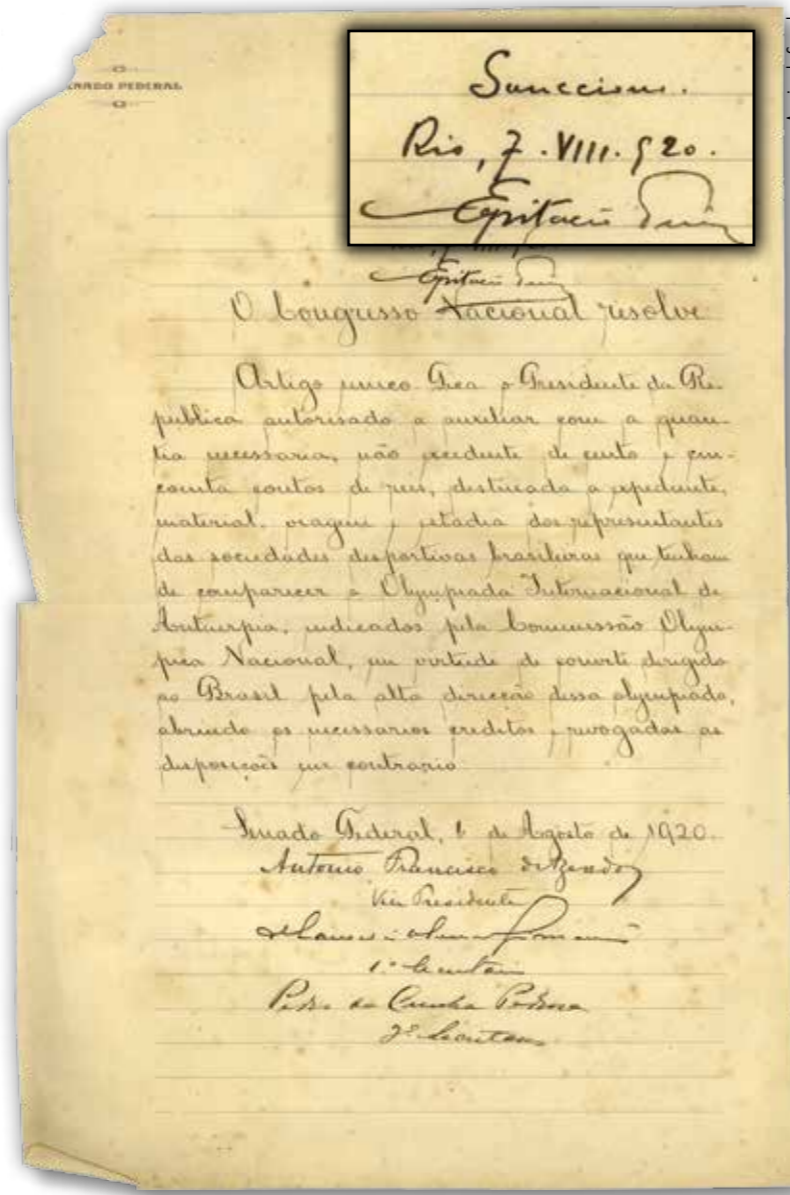 SENADO FEDERAL
Sancciono.
Rio, 7. VIII. 920.
Epitacio
Epitacio
O Congresso Nacional resolve
Artigo unico Fica o Presidente da Re-
publica autorisado a auxiliar com a quan-
tia necessaria, não excedente de cento e cin-
coenta contos de reis, destinada a expediente,
material, viagem e estadia dos representantes
das sociedades desportivas brasileiras que tenham
de comparecer a Olympiada Internacional de
Antuerpia, indicados pela Commissão Olym-
pica Nacional, em virtude de convite dirigido
ao Brasil pela alta direcção dessa olympiada,
abrindo os necessarios creditos, revogadas as
disposições em contrario
Senado Federal, 6 de Agosto de 1920.
Antonio Francisco de Azeredo
Vice Presidente
1º Secretario
Pedro da Cunha Pedrosa
2º Secretario